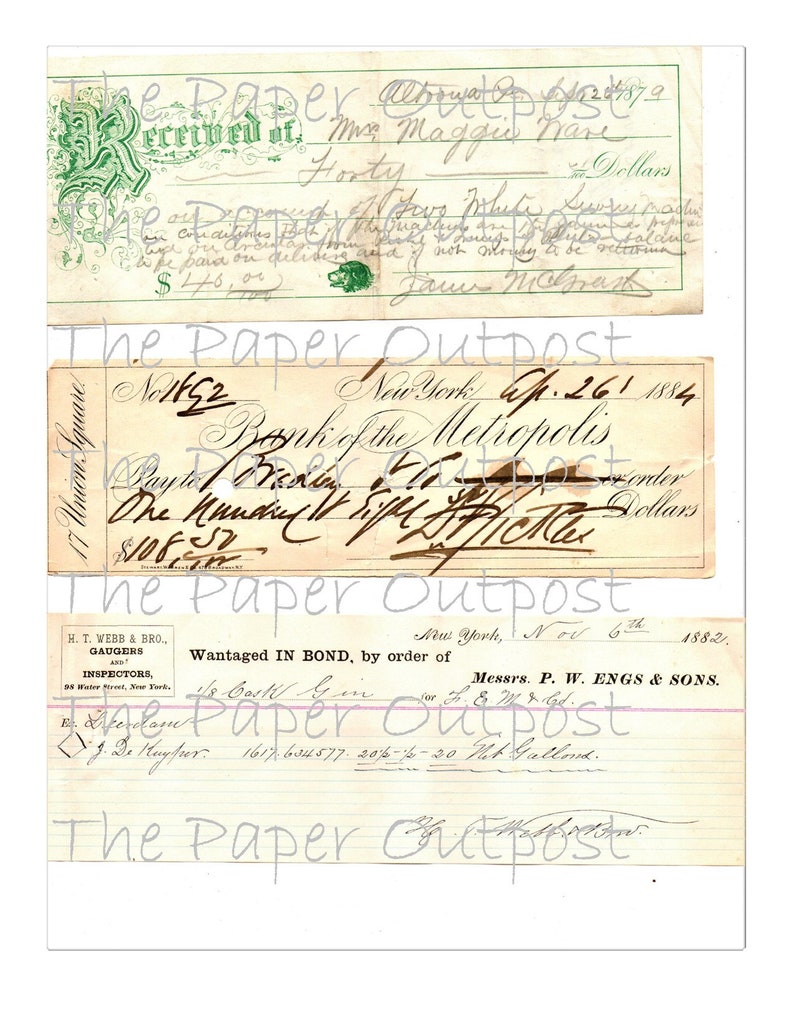 The Paper Outpost
Altoona Pa. 26th 1879
Received of Mrs Maggie Ware
Forty /100 Dollars
The Paper Outpost
on account of Two White Sewing Machines
on conditions that if the machines are
to be paid on delivery and if not money to be returned
$ 40,00/100 James McGrath
The Paper Outpost
17 Union Square
No 1892 New York Ap. 26 1884
Bank of the Metropolis
The Paper Outpost
Pay to or order
One Hundred & Eight Dollars
$108,50
STEWART WARREN & CO. BROADWAY, N.Y.
The Paper Outpost
H. T. WEBB & BRO.,
GAUGERS
AND
INSPECTORS,
98 Water Street, New York.
New York, Nov 6th 1882.
Wantaged IN BOND, by order of
Messrs. P. W. ENGS & SONS.
1/8 Cask Gin for
The Paper Outpost
Ex.
J. De Kuyper. 1617.634577. 20 1/2 - 1/2 - 20 Net Gallons.
H. T. Webb & Bro.
The Paper Outpost